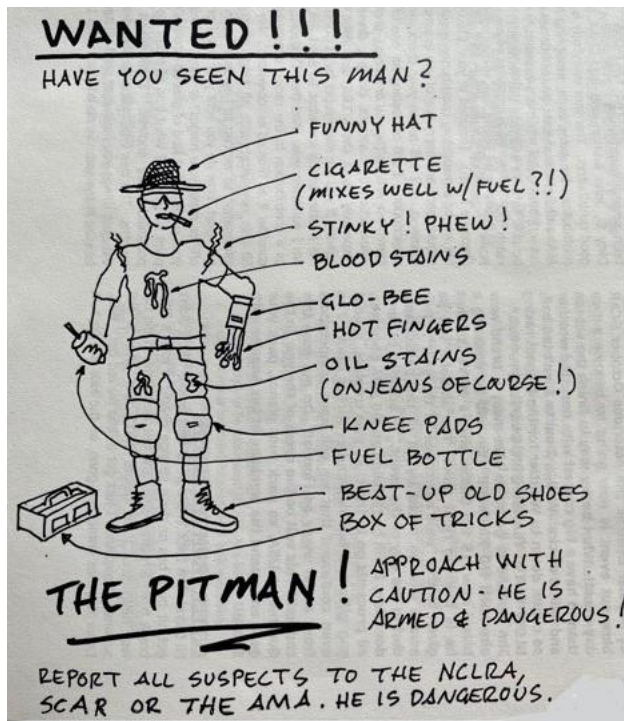 WANTED!!!
HAVE YOU SEEN THIS MAN?
FUNNY HAT
CIGARETTE
(MIXES WELL W/FUEL?!)
STINKY! PHEW!
BLOOD STAINS
GLO-BEE
HOT FINGERS
OIL STAINS
(ON JEANS OF COURSE!)
KNEE PADS
FUEL BOTTLE
BEAT-UP OLD SHOES
BOX OF TRICKS
THE PITMAN!
APPROACH WITH
CAUTION - HE IS
ARMED & DANGEROUS!
REPORT ALL SUSPECTS TO THE NCLRA,
SCAR OR THE AMA. HE IS DANGEROUS.